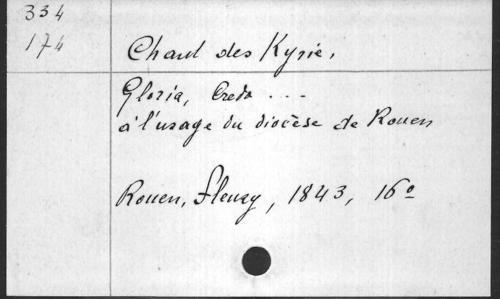 334
174
Chant des Kyrie,
Gloria, Credo ...
à l'usage du diocèse de Rouen
Rouen, Fleury, 1843, 16º